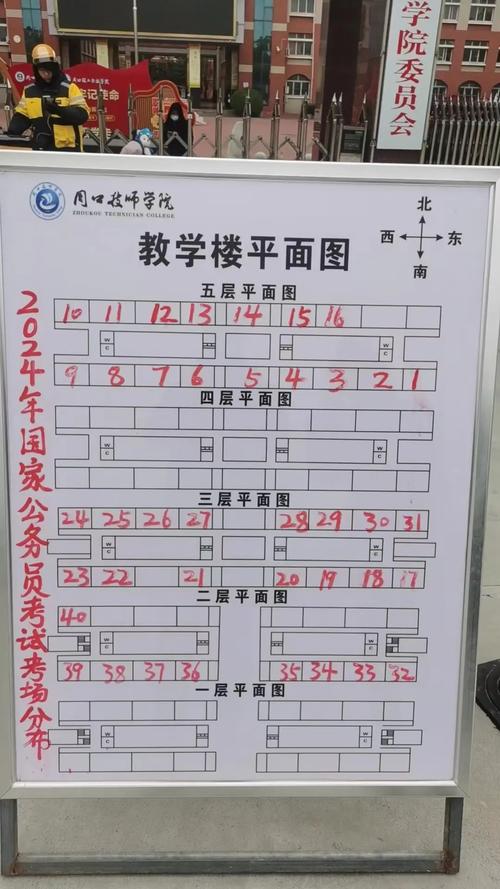 学院委员会
周口技师学院
ZHOUKOU TECHNICIAN COLLEGE
北
西 东
南
教学楼平面图
2024年国家公务员考试考场分布
五层平面图
10 11 12 13 14 15 16
WC
WC
9 8 7 6 5 4 3 2 1
四层平面图
WC
WC
三层平面图
24 25 26 27 28 29 30 31
WC
WC
23 22 21 20 19 18 17
二层平面图
40
WC
WC
39 38 37 36 35 34 33 32
一层平面图
WC
WC